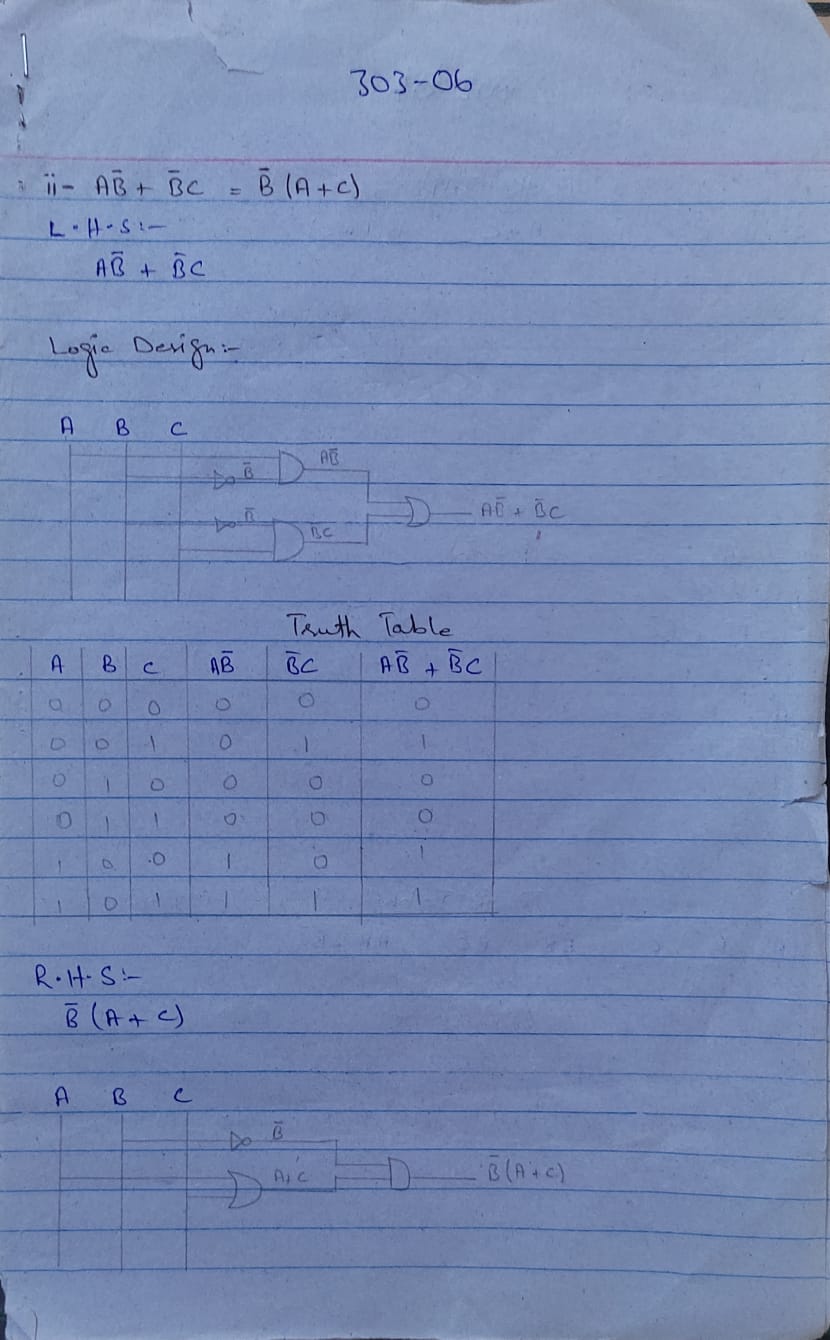 303-06
ii- AB̄ + B̄C = B̄ (A+C)
L.H.S:-
AB̄ + B̄C
Logic Design:-
A B C
B̄ AB̄
AB̄ + B̄C
B̄ B̄C
Truth Table
A B C AB̄ B̄C AB̄ + B̄C
0 0 0 0 0 0
0 0 1 0 1 1
0 1 0 0 0 0
0 1 1 0 0 0
1 0 0 1 0 1
1 0 1 1 1 1
R.H.S:-
B̄ (A + C)
A B C
B̄
A+C B̄(A+C)